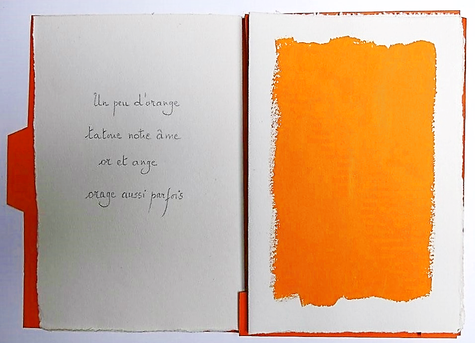 Un peu d'orange
tatoue notre âme
or et ange
orage aussi parfois